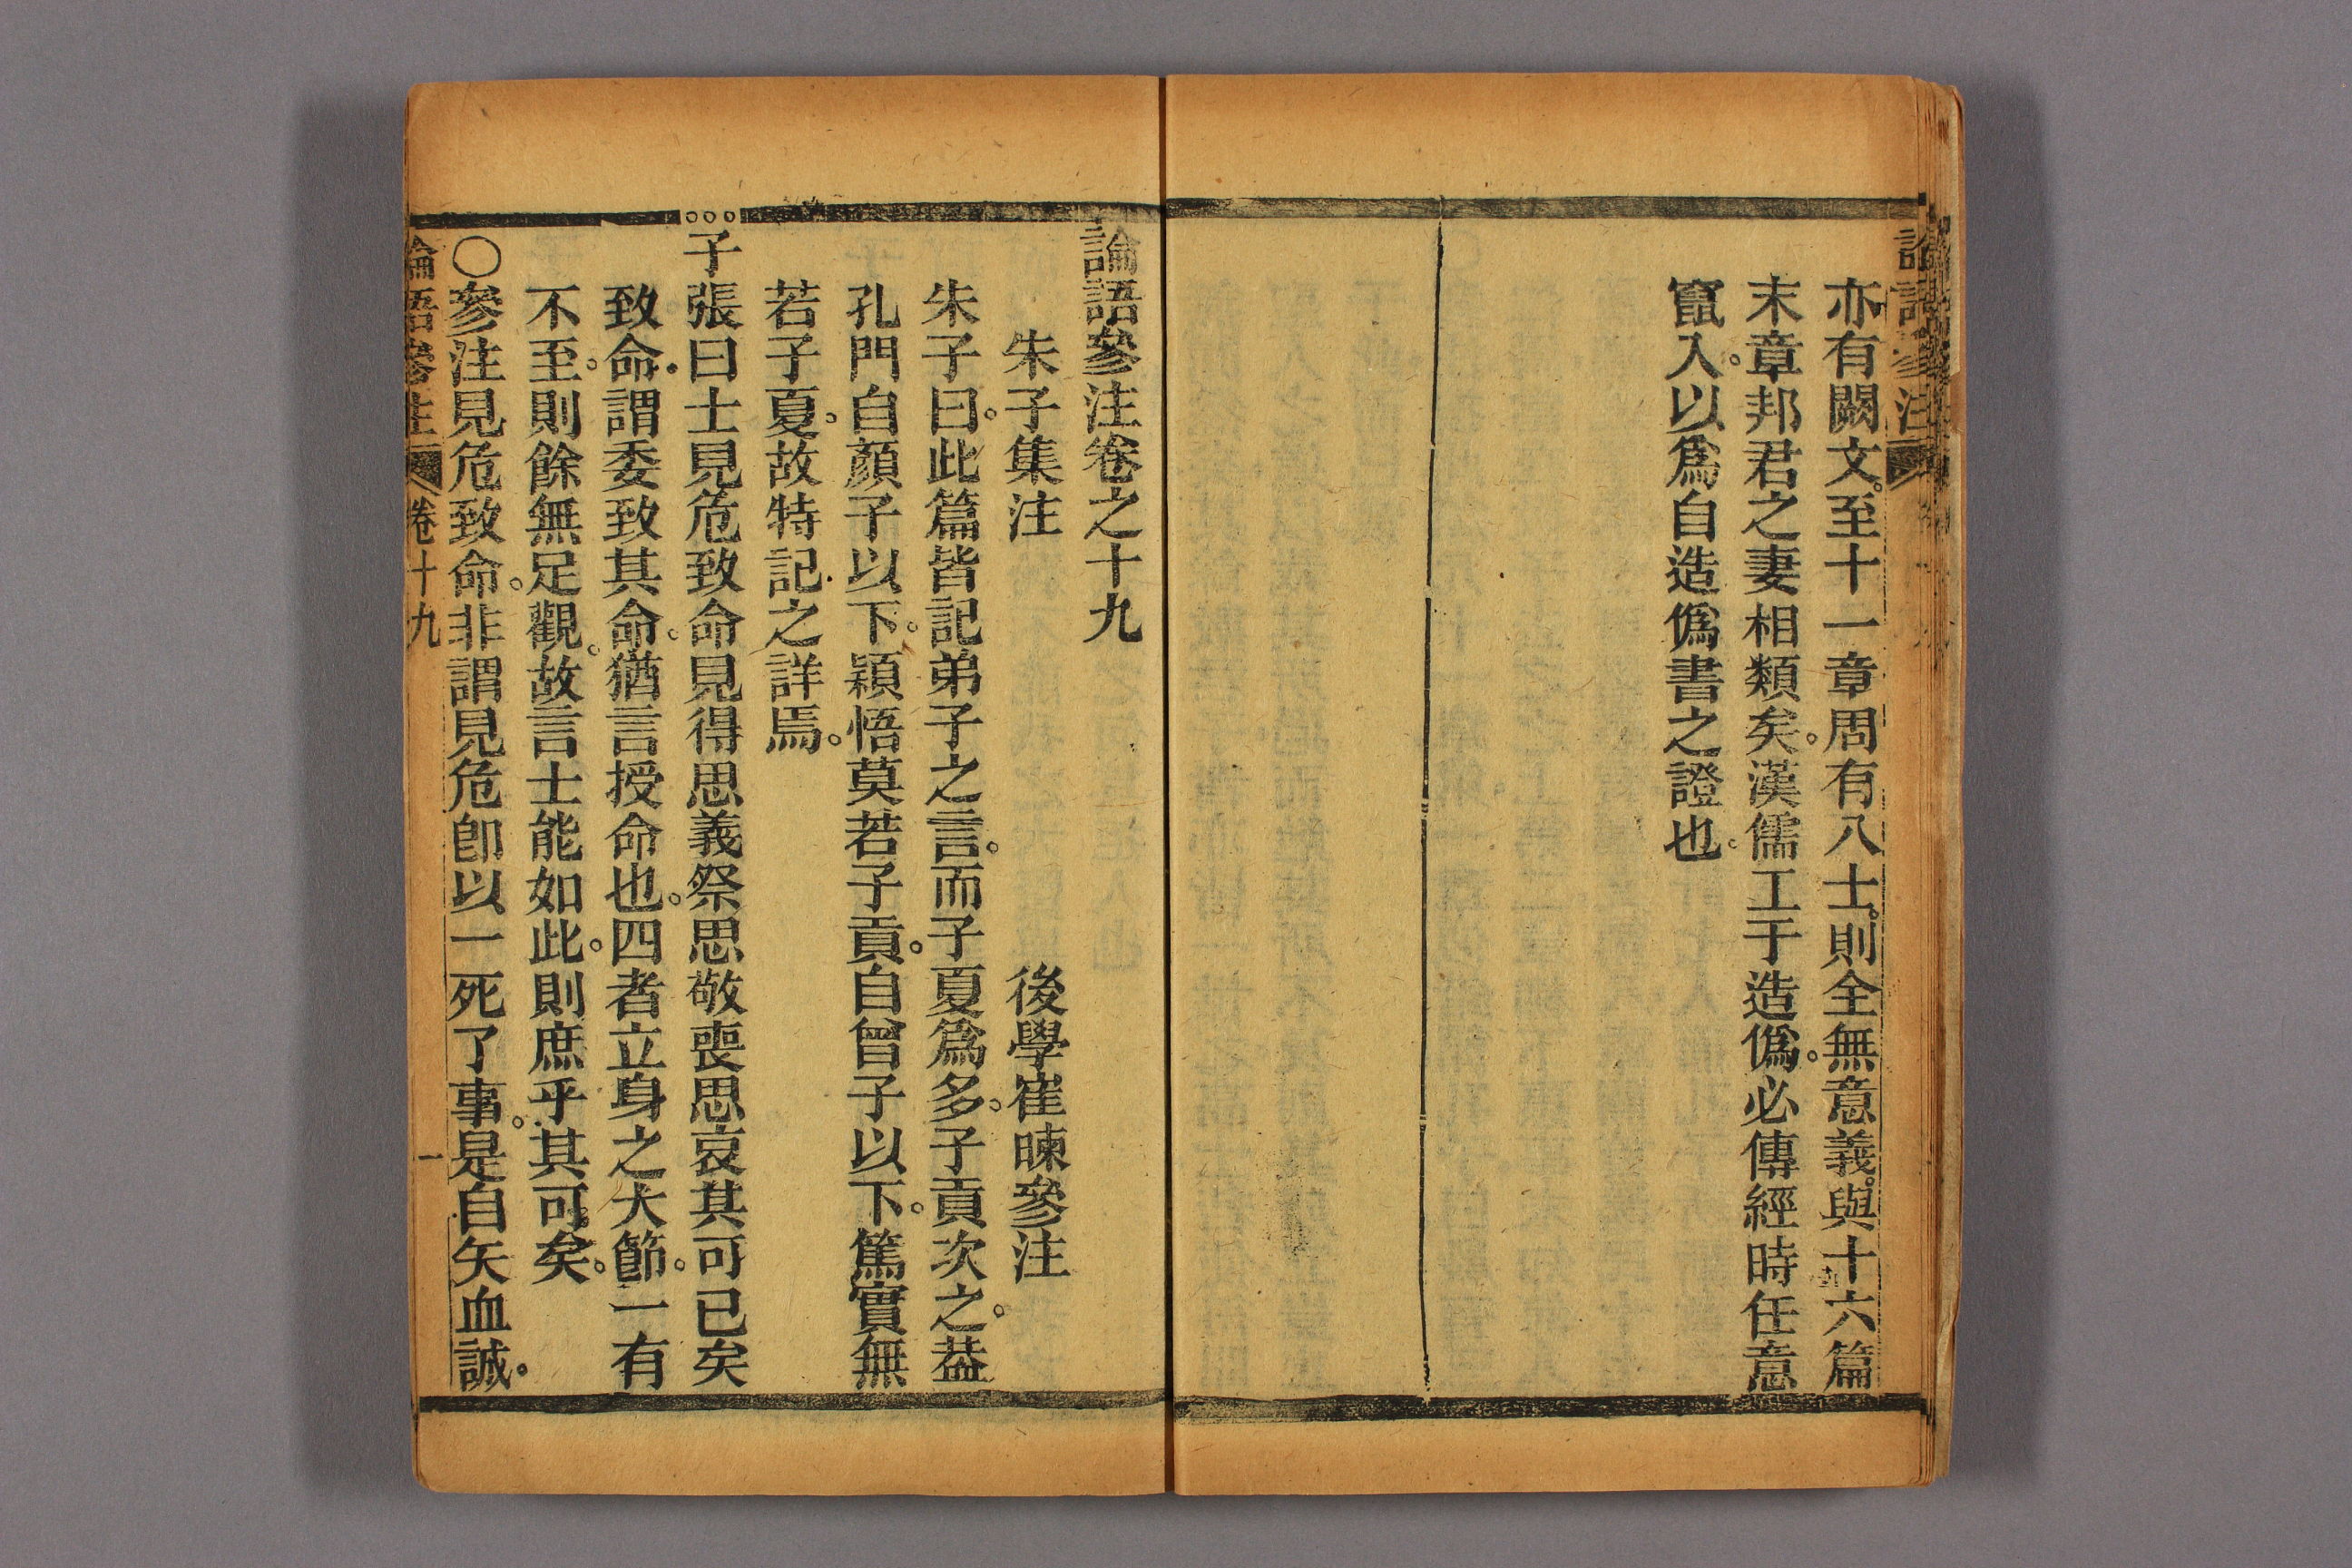 論語參注
亦有闕文。至十一章周有八士。則全無意義。與十六篇
末章邦君之妻相類矣。漢儒工于造僞。必傳經時任意
竄入。以爲自造僞書之證也。
論語參注卷之十九
朱子集注　後學崔暕參注
朱子曰。此篇皆記弟子之言。而子夏爲多。子貢次之。葢
孔門自顏子以下。穎悟莫若子貢。自曾子以下。篤實無
若子夏。故特記之詳焉。
子張曰士見危致命見得思義祭思敬喪思哀其可已矣
致命。謂委致其命。猶言授命也。四者立身之大節。一有
不至。則餘無足觀。故言士能如此。則庶乎其可矣。
〇參注見危致命。非謂見危卽以一死了事。是自矢血誠。
論語參注　卷十九　一